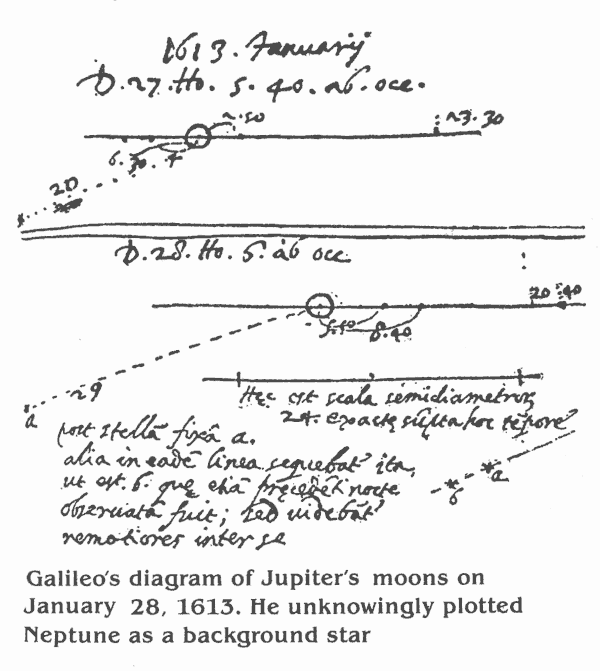 1613. Januarij
D. 27. Ho. 5. 40. ab. occ.
2.50
23.30
6. 30. 4
20
D. 28. Ho. 5. ab occ
20 40
5.50 8.40
29
a
Hęc est scala semidiametrorū
24. exactę sūpta hoc tēpore
post stellā fixā a.
alia in eadē linea sequebat' ita,
ut est. b. quę etiā pręcedēti nocte
observata fuit; sed videbāt'
remotiores inter se
b a
Galileo's diagram of Jupiter's moons on
January 28, 1613. He unknowingly plotted
Neptune as a background star